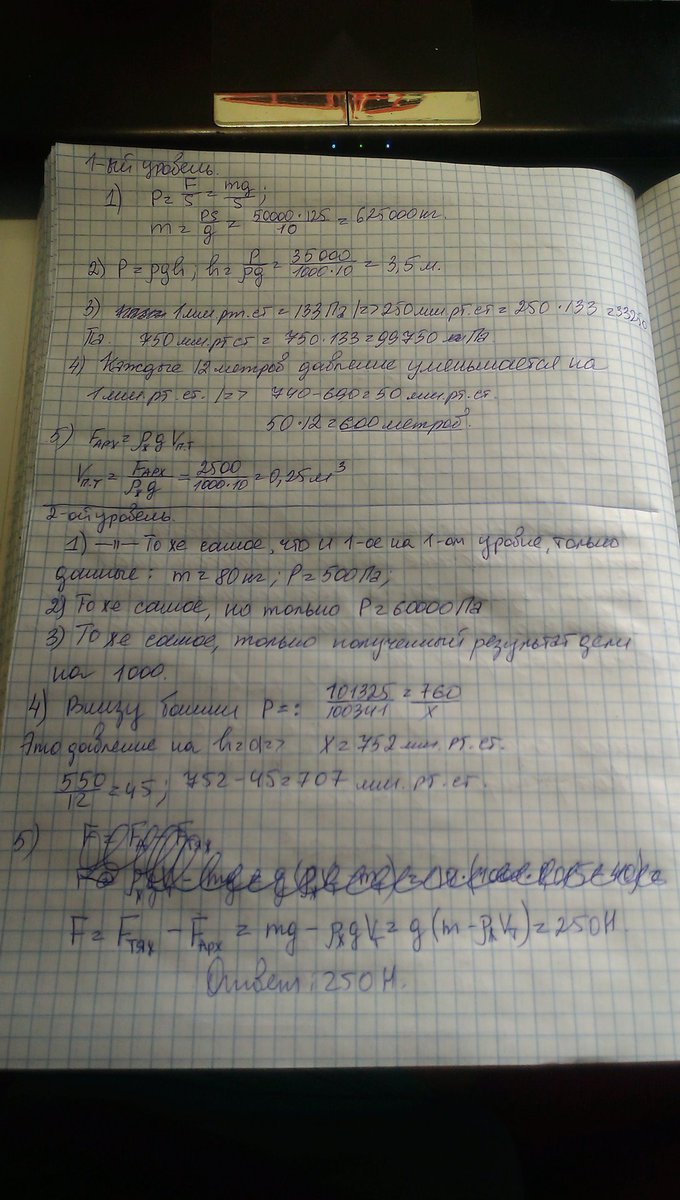 1-ый уровень.
1) P = F/S = mg/S;
m = PS/g = 50000·125/10 = 625000 кг.
2) P = ρgh; h = P/ρg = 35000/1000·10 = 3,5 м.
3) 1 мм рт. ст = 133 Па |=> 250 мм рт. ст = 250 · 133 = 33250
Па. 750 мм рт ст = 750 · 133 = 99750 Па
4) Каждые 12 метров давление уменьшается на
1 мм. рт. ст. |=> 740-690=50 мм. рт. ст.
50·12=600 метров.
5) Fарх = ρж g Vп.т
Vп.т = Fарх/ρж g = 2500/1000·10 = 0,25 м³
2-ой уровень.
1) —"— То же самое, что и 1-ое на 1-ом уровне, только
данные: m = 80 кг; P = 500 Па;
2) То же самое, но только P = 60000 Па
3) То же самое, только полученный результат дели
на 1000.
4) Внизу башни P =: 101325/100341 = 760/x
Это давление на h=0 => x = 752 мм. рт. ст.
550/12 = 45; 752-45=707 мм. рт. ст.
5)
F = Fтяж - Fарх = mg - ρж g Vт = g(m - ρж Vт) = 250 Н.
Ответ: 250 Н.